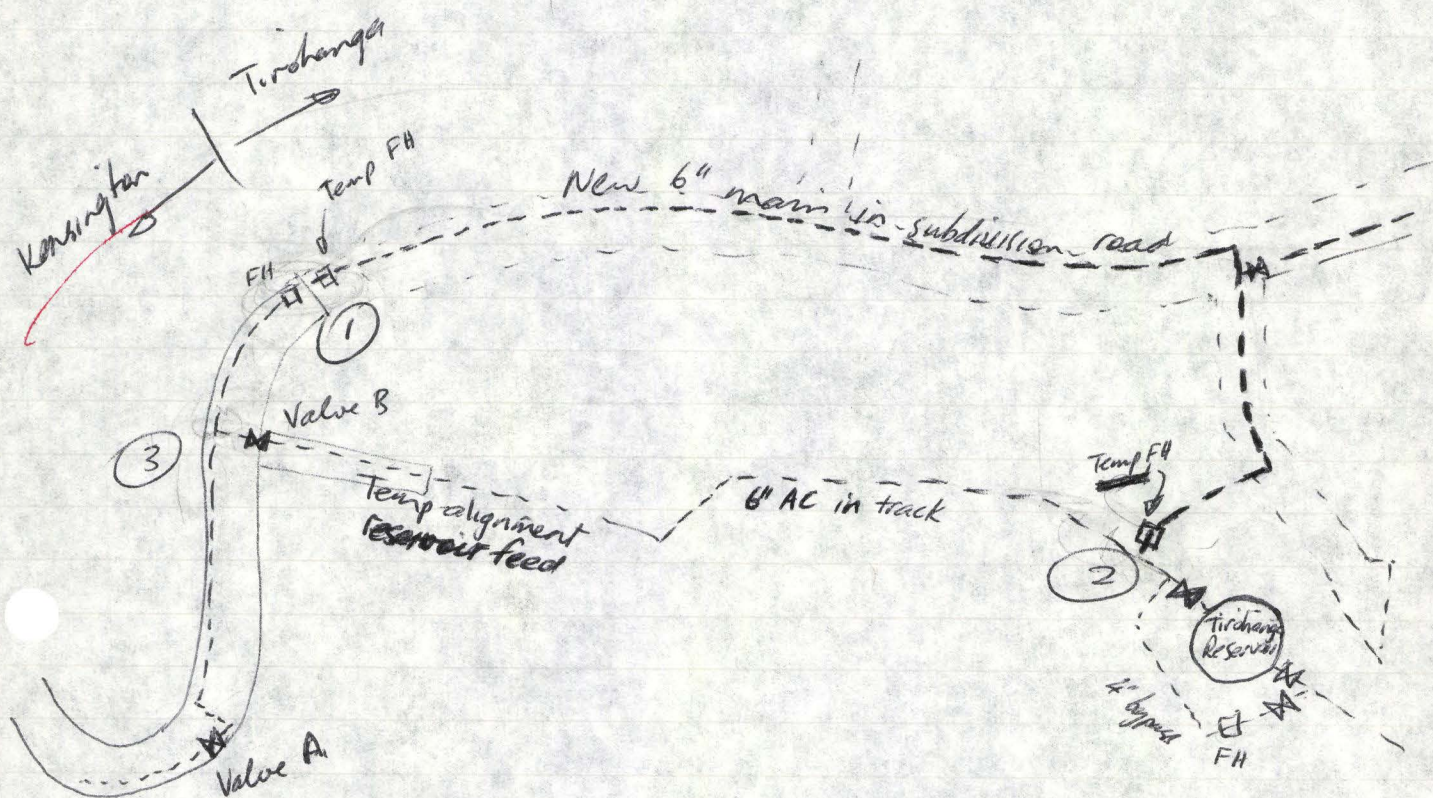 Tirohanga
Kensington
Temp FH
FH
New 6" main in subdivision road
1
Valve B
3
Temp alignment
reservoir feed
6" AC in track
Temp FH
2
Tirohanga
Reservoir
4" bypass
FH
Valve A